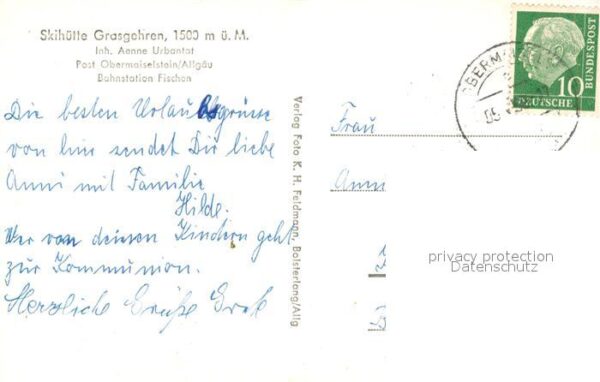 Skihütte Grasgehren, 1500 m ü. M.
Inh. Aenne Urbantat
Post Obermaiselstein/Allgäu
Bahnstation Fischen
Die besten Urlaubsgrüsse
von hier sendet Dir liebe
Anni mit Familie
Hilde.
Wer von deinen Kindern geht
zur Kommunion.
Herzliche Grüße
Verlag Foto K. H. Feldmann, Bolsterlang/Allg
Frau
Anni
10
DEUTSCHE
BUNDESPOST
privacy protection
Datenschutz